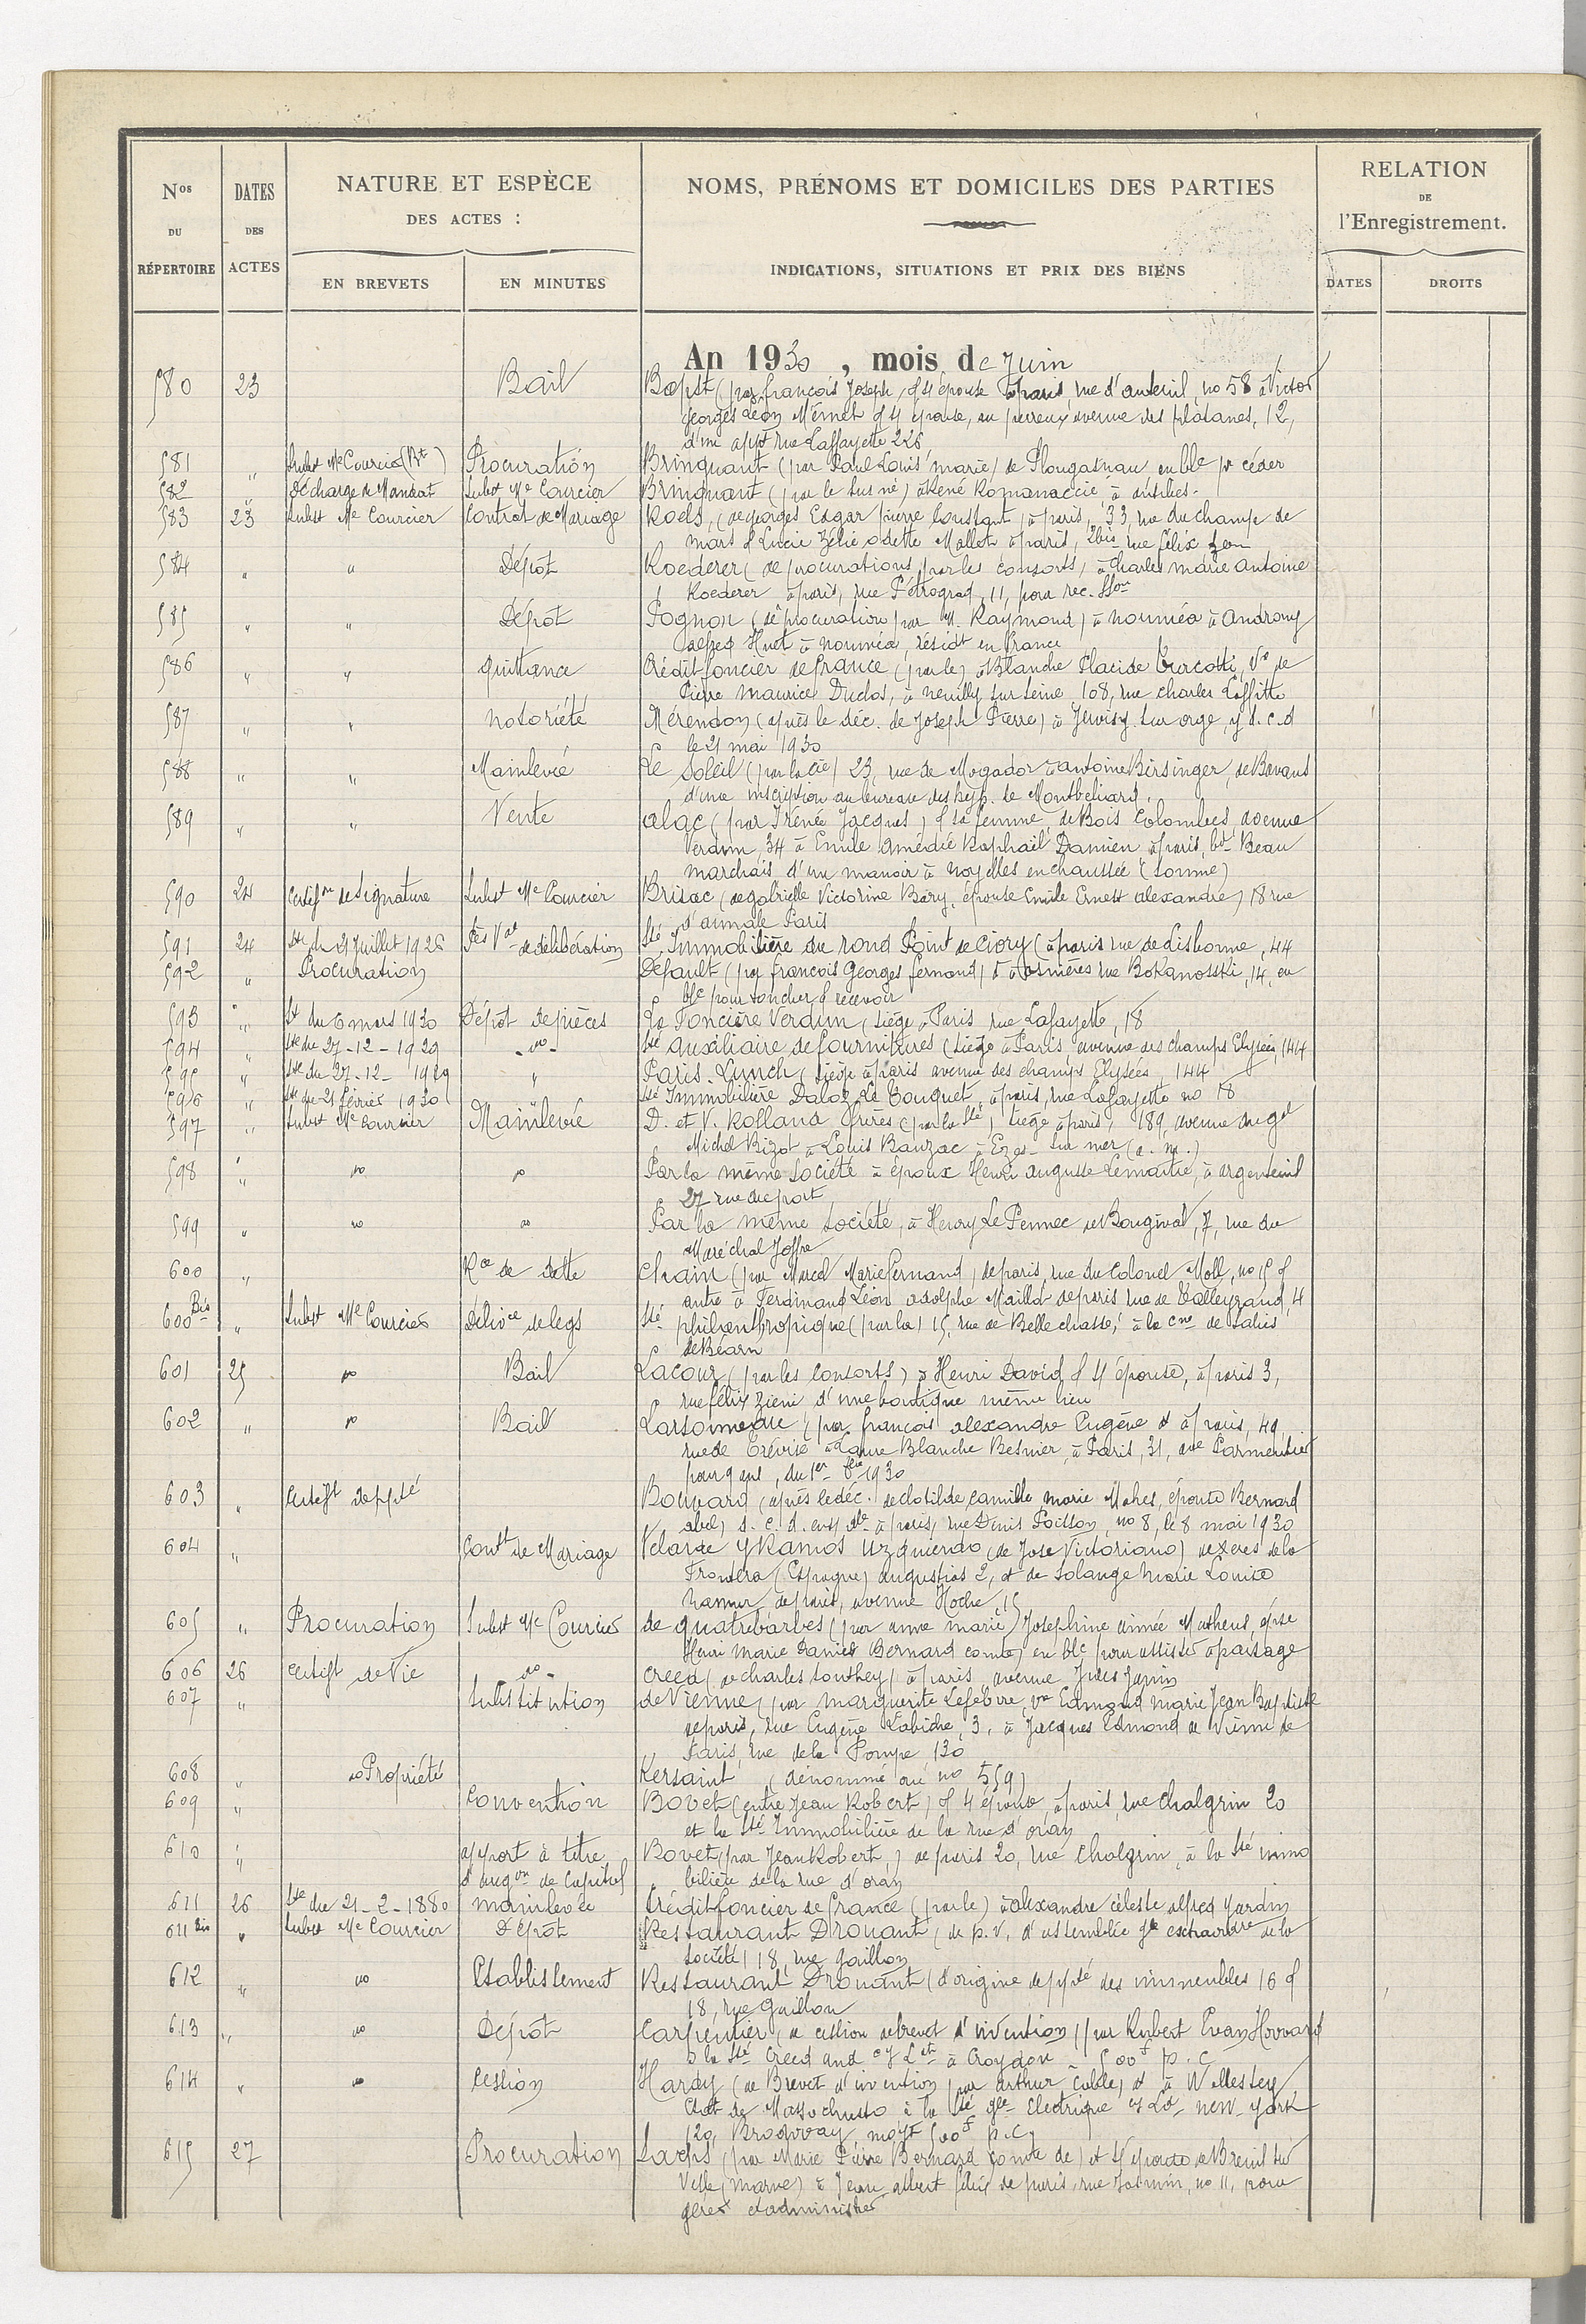 Nos
DU
RÉPERTOIRE
DATES
DES
ACTES
NATURE ET ESPÈCE
DES ACTES :
EN BREVETS
EN MINUTES
NOMS, PRÉNOMS ET DOMICILES DES PARTIES
INDICATIONS, SITUATIONS ET PRIX DES BIENS
RELATION
DE
l'Enregistrement.
DATES
DROITS
An 1930, mois de Juin
580 23 Bail Bapst (par françois Joseph, & s épouse à paris, rue d'auteuil, no 58 à Victor
Georges Léon Mernet & s épouse, au perreux avenue des platanes, 12,
d'un appt rue Laffayette 226
581 " Subst Me Courcier (Bt) Procuration Bringuant (par Paul Louis marie) de Plougasnau en blc pr céder
582 " Décharge de Mandat Subst Me Courcier Bringuant (par le susné) à René Romanaccie à antibes.
583 23 Subst Me Courcier Contrat de Mariage Roels, (de georges Edgar pierre Constant, à paris, 33, rue du champ de
mars & Lucie Zélie odette Mallet à paris, 2bis rue félix
584 " " Dépôt Roederer (de procurations par les consorts) à Charles marie antoine
Roederer à paris, rue Pétrograd, 11, pour rec. ss
585 " " Dépôt Pognon (de procuration par M. Raymond) à nouméa à
alfred Huet à nouméa, résidt en france
586 " " quittance Crédit foncier de france (par le) à Blanche Placide Turcotti, Ve de
Pierre Maurice Duclos, à neuilly sur seine, 108, rue charles Laffitte
587 " " notoriété Mérendon (après le déc. de Joseph Pierre) à Juvisy sur orge, y d. c. d
le 21 mai 1930
588 " " Mainlevée Le Soleil (par la cie) 23, rue de Mogador à antoine Birsinger, de Bavans
d'une inscription au bureau des hyp. de Montbéliard.
589 " " Vente alac (par Irénée Jacques) & sa femme, de Bois Colombes, avenue
Verdun, 34 à Emile amédée Raphaël Damien à paris, bd Beau
marchais d'un manoir à noyelles en chaussée (somme)
590 24 Certifon de signature Subst Me Courcier Brisac (de gabrielle Victorine Bary, épouse Emile Ernest alexandre) 18 rue
d'aumale Paris
591 24 Ste du 21 Juillet 1926 Pès Val de délibération Sté Immobilière du rond Point de Civry (à paris rue de Lisbonne, 44
592 " Procuration Défault (par françois Georges fernand) dt à asnières rue Bokanosski, 14, en
blc pour toucher & recevoir
593 " St du 6 mars 1930 Dépôt de pièces La Foncière Verdun (siège à Paris rue Lafayette, 18
594 " Ste du 27-12-1929 - do - Sté auxiliaire de fournitures (siège à Paris avenue des champs Elysées 144
595 " Ste du 27-12-1929 " Paris-Lunch (siège à paris avenue des champs Elysées, 144
596 " Ste du 21 février 1930 " Sté Immobilière Daloz Le Touquet, à paris, rue Lafayette no 18
597 " Subst Me Courcier Mainlevée D. et V. Rolland frères (par la sté) siège à paris, 189, avenue du gal
Michel Bizot à Louis Bauzac à Ezes sur mer (a. m.)
598 " do do Par la même Société à époux Henri auguste Lemaitre, à argenteuil
27 rue du port
599 " do do Par la même Société, à Henry Le Pennec de Bougival, 7, rue du
Maréchal Joffre
600 " Rce de dette Chain (par Marcel Marie Fernand) de paris, rue du Colonel Moll, no 15 &
autre à Ferdinand Léon adolphe Maillot de paris rue de Talleyrand, 4
600 Bis " Subst Me Courcier Délivce de legs Sté philanthropique (par la) 15, rue de Bellechasse, à la cne de Salies
de Béarn
601 25 do Bail Lacour (par les consorts) à Henri David & s épouse, à paris 3,
rue félix Ziem d'une boutique même lieu
602 " do Bail Larsonneau (par françois alexandre Eugène dt à paris, 49,
rue de Trévise à Laure Blanche Besnier, à Paris, 31, ave Parmentier
pour 9 ans, du 1er 1930
603 " Certift de ppté Bouvard (après le déc. de clotilde camille marie Mahes, épouse Bernard
abel) d. c. d. en s dle à paris, rue Denis Poisson, no 8, le 8 mai 1930
604 " Contt de Mariage Velarde Y Ramos Uzquiendo (de Jose Victoriano) de Xeres de la
Frontera (Espagne) angustias 2, et de Solange Marie Louise
hamur, de paris, avenue Hoche, 15
605 " Procuration Subst Me Courcier de quatrebarbes (par anne marie) Josephine aimée Matheus, épse
Henri Marie Daniel Bernard comte) en blc pour assister à partage
606 26 Certift de Vie - do - Creed (de charles Southey) à paris, avenue Jules Janin
607 " Substitution de Vienne (par Marguerite Lefebvre, ve Edmond Marie Jean Baptiste
de paris, rue Eugène Labiche, 3, à Jacques Edmond de Vienne de
Paris, rue de la Pompe 130
608 " do Propriété Kersaint (dénommé au no 559)
609 " Convention Bovet (entre Jean Robert) & s épouse, à paris, rue chalgrin 20
et la Sté Immobilière de la rue d'oran
610 " apport à titre d'augon de Capital Bovet (par Jean Robert) de paris 20, rue Chalgrin, à la Sté immo
bilière de la rue d'oran
611 26 Ste du 21-2-1880 mainlevée Crédit foncier de france (par le) à alexandre céleste alfred Jardin
611 bis " Subst Me Courcier Dépôt Restaurant Drouant (de p. v. d'assemblée gle extraordre de la
société) 18, rue gaillon
612 " do Etablissement Restaurant Drouant (d'origine de ppté des immeubles 16 &
18, rue Gaillon
613 " do Dépôt Carpentier (de cession de brevet d'invention) (par Rupert Evan Howard
à la Sté Creed and Cy Ltd à Croydon - 500f p. c
614 " do Cession Hardy (de Brevet d'invention par arthur ) dt à Wellesley,
Etat de Massachusets à la Sté gle Electrique Cy Ld new-york
120, Broadway moyt 500f p. c,
615 27 Procuration Sachs (par Marie Pierre Bernard comte de) et s épouse de Breuil sur
Velle (marne) à Jean albert félix de paris, rue Jasmin, no 11, pour
gérer & administrer